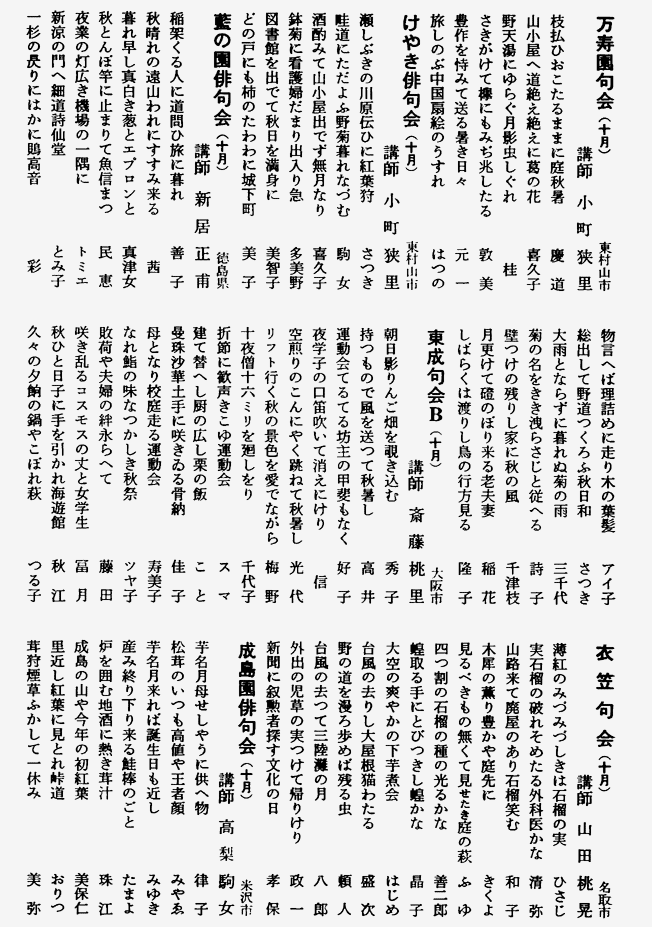 万寿園句会(十月)
東村山市
講師 小町 狭里
枝払ひおこたるままに庭秋暑 慶道
山小屋へ道絶え絶えに葛の花 喜久子
野天湯にゆらぐ月影虫しぐれ 桂
さきがけて欅にもみぢ兆したる 敦美
豊作を恃みて送る暑き日々 元一
旅しのぶ中国扇絵のうすれ はつの
けやき俳句会(十月)
東村山市
講師 小町 狭里
瀬しぶきの川原伝ひに紅葉狩 さつき
畦道にただよふ野菊暮れなづむ 駒女
酒酌みて山小屋出でず無月なり 喜久子
鉢菊に看護婦だまり出入り急 多美野
図書館を出でて秋日を満身に 美智子
どの戸にも柿のたわわに城下町 美子
藍の園俳句会(十月)
徳島県
講師 新居 正甫
稲架くる人に道問ひ旅に暮れ 善子
秋晴れの遠山われにすすみ来る 茜
暮れ早し真白き葱とエプロンと 真津女
秋とんぼ竿に止まりて魚信まつ 民恵
夜業の灯広き機場の一隅に トミエ
新涼の門へ細道詩仙堂 とみ子
一杉の長りにはかに鵙高音 彩
物言へば理詰めに走り木の葉髪 アイ子
総出して野道つくろふ秋日和 さつき
大雨とならずに暮れぬ菊の雨 三千代
菊の名をきき洩らさじと従へる 詩子
壁つけの残りし家に秋の風 千津枝
月更けて磴のぼり来る老夫妻 稲花
しばらくは渡りし鳥の行方見る 隆子
東成句会B(十月)
大阪市
講師 斎藤 桃里
朝日影りんご畑を覗き込む 秀子
持つもので風を送つて秋暑し 高井
運動会てるてる坊主の甲斐もなく 好子
夜学子の口笛吹いて消えにけり 信
空煎りのこんにやく跳ねて秋暑し 光代
リフト行く秋の景色を愛でながら 梅野
十夜僧十六ミリを廻しをり 千代子
折節に歓声きこゆ運動会 スマ
建て替へし厨の広し栗の飯 こと
曼珠沙華土手に咲きゐる骨納 佳子
母となり校庭走る運動会 寿美子
なれ鮨の味なつかしき秋祭 ツヤ子
敗荷や夫婦の絆永らへて 藤田
咲き乱るコスモスの丈と女学生 冨月
秋ひと日子に手を引かれ海遊館 秋江
久々の夕餉の鍋やこぼれ萩 つる子
衣笠句会(十月)
名取市
講師 山田 桃晃
薄紅のみづみづしきは石榴の実 ひさじ
実石榴の破れそめたる外科医かな 清弥
山路来て廃屋のあり石榴笑む 和子
木犀の薫り豊かや庭先に きくよ
見るべきもの無くて見せたき庭の萩 ふゆ
四つ割の石榴の種の光るかな 善二郎
蝗取る手にとびつきし蝗かな 晶子
大空の爽やかの下芋煮会 はじめ
台風の去りし大屋根猫わたる 盛次
野の道を漫ろ歩めば残る虫 頼人
台風の去つて三陸灘の月 八郎
外出の児草の実つけて帰りけり 政一
新聞に叙勲者探す文化の日 孝保
成島園俳句会(十月)
米沢市
講師 高梨 駒女
芋名月母せしやうに供へ物 律子
松茸のいつも高値や王者顔 みやゑ
芋名月来れば誕生日も近し みゆき
産み終り下り来る鮭棒のごと たまよ
炉を囲む地酒に熱き茸汁 珠江
成島の山や今年の初紅葉 美保仁
里近し紅葉に見とれ峠道 おりつ
茸狩煙草ふかして一休み 美弥